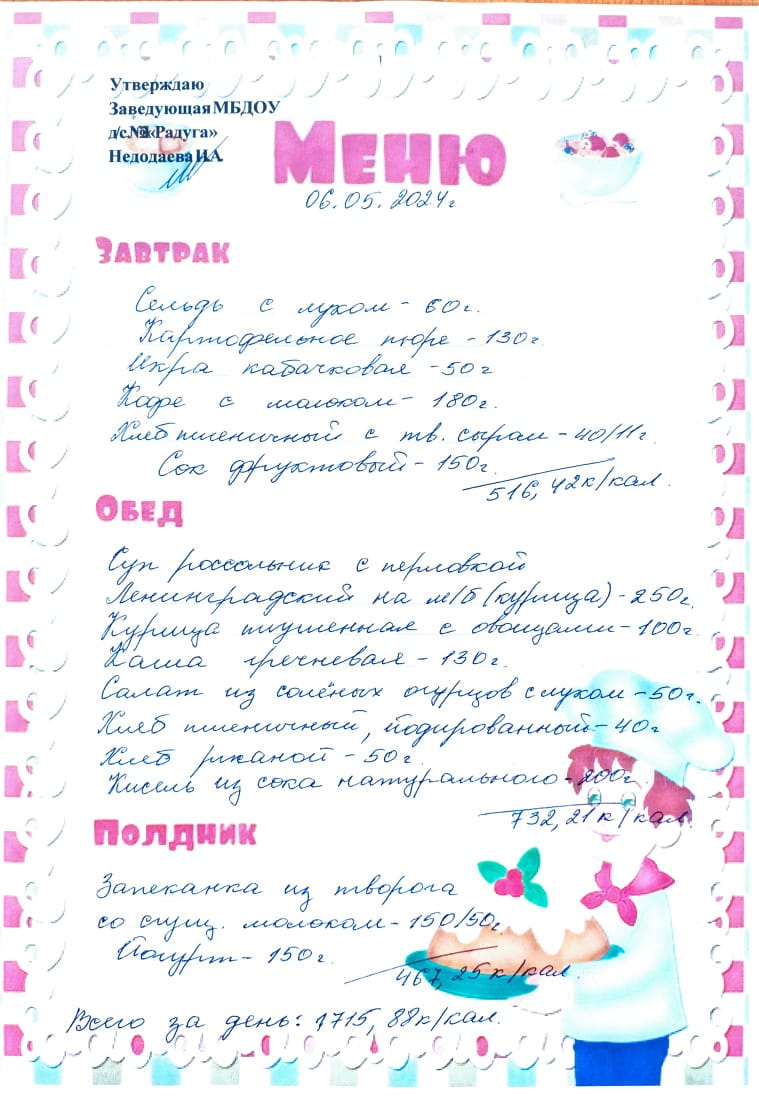 Утверждаю
Заведующая МБДОУ
д/с «Радуга»
Недодаева И.А.
Меню
06.05.2024г
Завтрак
Сельдь с луком - 60г.
Картофельное пюре - 130г.
Икра кабачковая - 50г
Кофе с молоком - 180г.
Хлеб пшеничный с тв. сыром - 40/11г.
Сок фруктовый - 150г.
516,42к/кал.
Обед
Суп россольник с перловкой
Ленинградский на м/б (курица) - 250г.
Курица тушенная с овощами - 100г.
Каша гречневая - 130г.
Салат из солёных огурцов с луком - 50г.
Хлеб пшеничный, йодированный - 40г
Хлеб ржаной - 50г.
Кисель из сока натурального - 200г.
732,21к/кал.
Полдник
Запеканка из творога
со сгущ. молоком - 150/50г.
Йогурт - 150г.
467,25к/кал.
Всего за день: 1715,88к/кал.